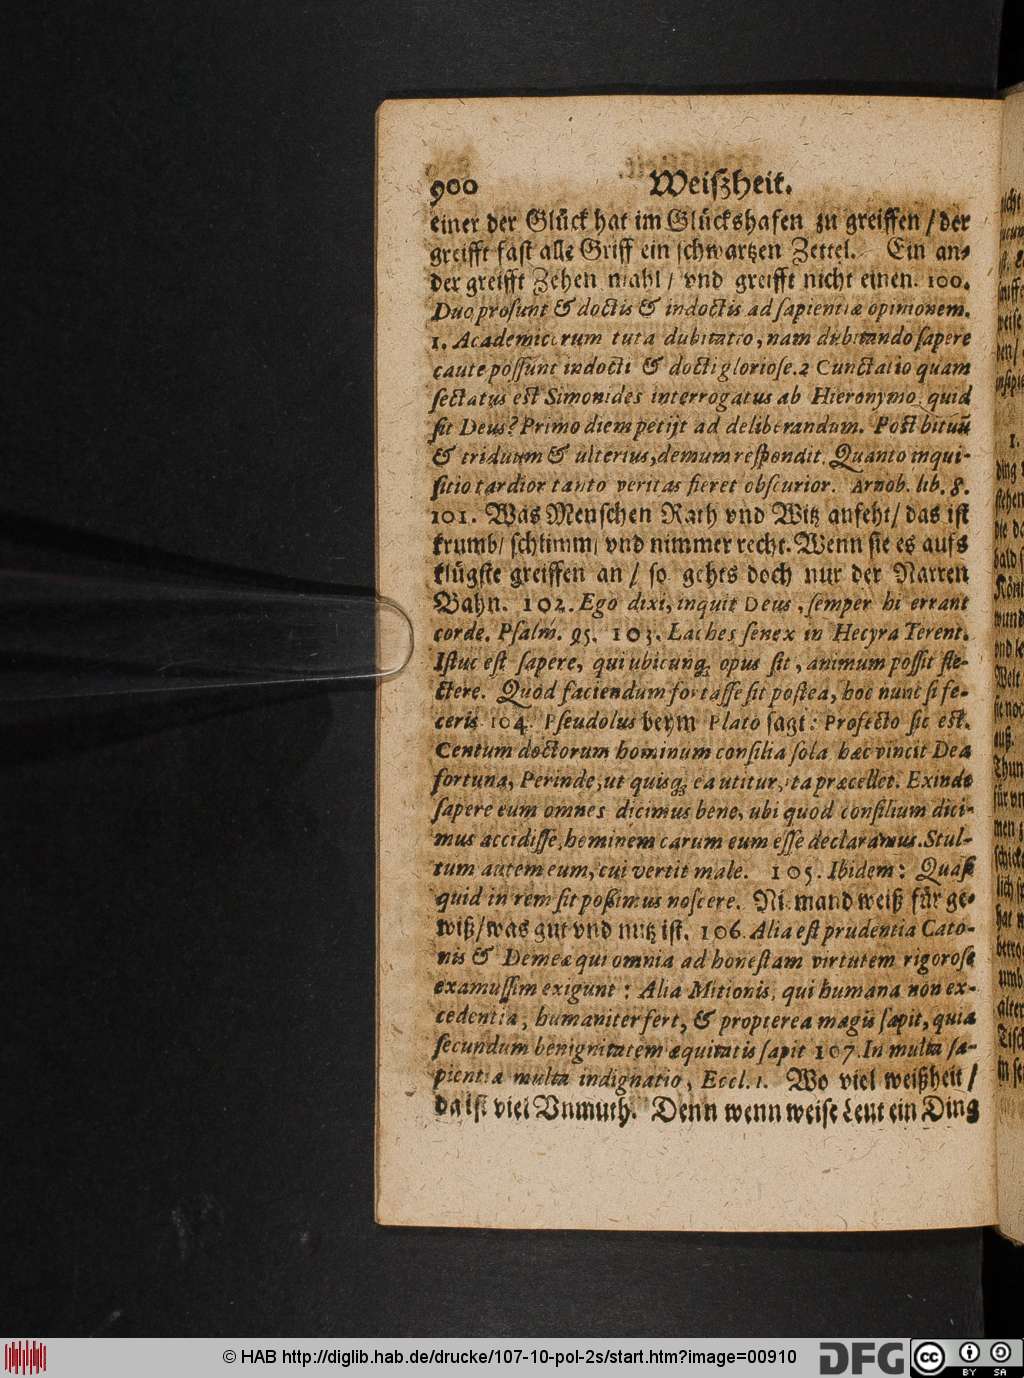 900 Weiſzheit.
einer der Glück hat im Glückshafen zu greiffen / der
greifft faſt alle Griff ein ſchwartzen Zettel. Ein an⸗
der greifft Zehen mahl / vnd greifft nicht einen. 100.
Duo proſunt & doctis & indoctis ad ſapientiæ opinionem.
1. Academicorum tuta dubitatio, nam dubitando ſapere
caute poſſunt indocti & docti glorioſe. 2 Cunctatio quam
ſectatus eſt Simonides interrogatus ab Hieronymo, quid
ſit Deus? Primo diem petijt ad deliberandum. Poſt bituũ
& triduum & ulterius, demum reſpondit. Quanto inqui-
ſitio tardior tanto veritas fieret obſcurior. Arnob. lib. 8.
101. Was Menſchen Rath vnd Witz anfeht / das iſt
krumb / ſchlimm / vnd nimmer recht. Wenn ſie es aufs
klügſte greiffen an / ſo gehts doch nur der Narren
Bahn. 102. Ego dixi, inquit Deus, ſemper hi errant
corde. Pſalm. 95. 103. Laches ſenex in Hecyra Terent.
Iſtuc eſt ſapere, qui ubicunq; opus ſit, animum poſſit fle-
ctere. Quod faciendum fortaſſe ſit poſtea, hoc nunc ſi fe-
ceris 104. Pſeudolus beym Plato ſagt: Profecto ſic eſt.
Centum doctorum hominum conſilia ſola hæc vincit Dea
fortuna, Perinde, ut quisq; ea utitur, ita præcellet. Exinde
ſapere eum omnes dicimus bene, ubi quod conſilium dici-
mus accidiſſe, heminem carum eum eſſe declaramus. Stul-
tum autem eum, cui vertit male. 105. Ibidem: Quaſi
quid in rem ſit poßimus noſcere. Niemand weiß für ge⸗
wiß / was gut vnd nutz iſt. 106. Alia eſt prudentia Cato-
nis & Demeæ qui omnia ad honeſtam virtutem rigoroſe
examuſſim exigunt: Alia Mitionis, qui humana non ex-
cedentia, humaniter fert, & propterea magis ſapit, quia
ſecundum benignitatem æquitatis ſapit 107. In multa ſa-
pientia multa indignatio, Eccl. 1. Wo viel weißheit /
da iſt viel Vnmuth. Denn wenn weiſe Leut ein Ding
© HAB http://diglib.hab.de/drucke/107-10-pol-2s/start.htm?image=00910
DFG
cc BY SA